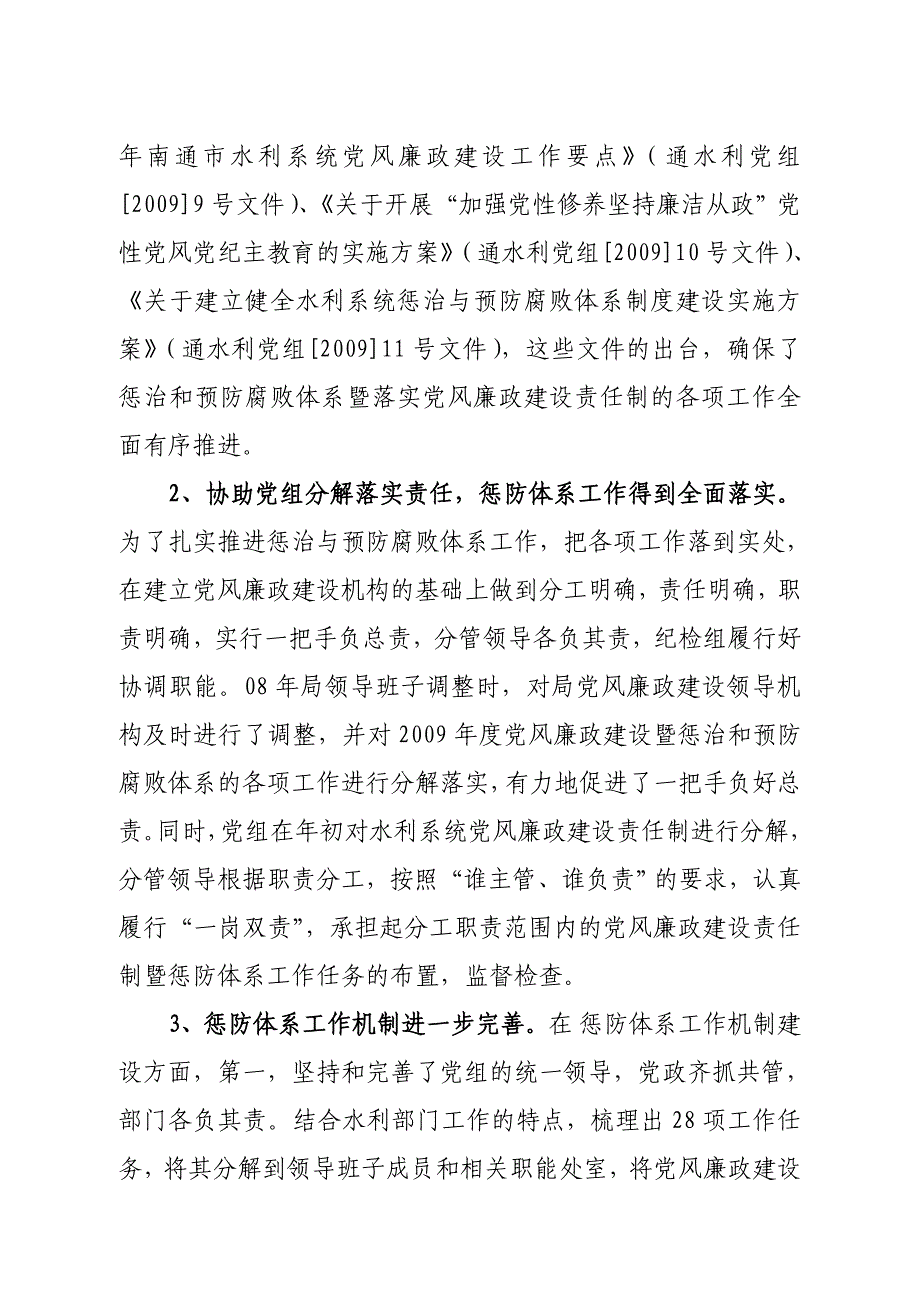 年南通市水利系统党风廉政建设工作要点》(通水利党组
[2009]9 号文件)、《关于开展“加强党性修养坚持廉洁从政”党
性党风党纪主教育的实施方案》(通水利党组[2009]10 号文件)、
《关于建立健全水利系统惩治与预防腐败体系制度建设实施方
案》(通水利党组[2009]11 号文件)，这些文件的出台，确保了
惩治和预防腐败体系暨落实党风廉政建设责任制的各项工作全
面有序推进。
2、协助党组分解落实责任，惩防体系工作得到全面落实。
为了扎实推进惩治与预防腐败体系工作，把各项工作落到实处，
在建立党风廉政建设机构的基础上做到分工明确，责任明确，职
责明确，实行一把手负总责，分管领导各负其责，纪检组履行好
协调职能。08 年局领导班子调整时，对局党风廉政建设领导机
构及时进行了调整，并对 2009 年度党风廉政建设暨惩治和预防
腐败体系的各项工作进行分解落实，有力地促进了一把手负好总
责。同时，党组在年初对水利系统党风廉政建设责任制进行分解，
分管领导根据职责分工，按照“谁主管、谁负责”的要求，认真
履行“一岗双责”，承担起分工职责范围内的党风廉政建设责任
制暨惩防体系工作任务的布置，监督检查。
3、惩防体系工作机制进一步完善。在 惩防体系工作机制建
设方面，第一，坚持和完善了党组的统一领导，党政齐抓共管，
部门各负其责。结合水利部门工作的特点，梳理出 28 项工作任
务，将其分解到领导班子成员和相关职能处室，将党风廉政建设